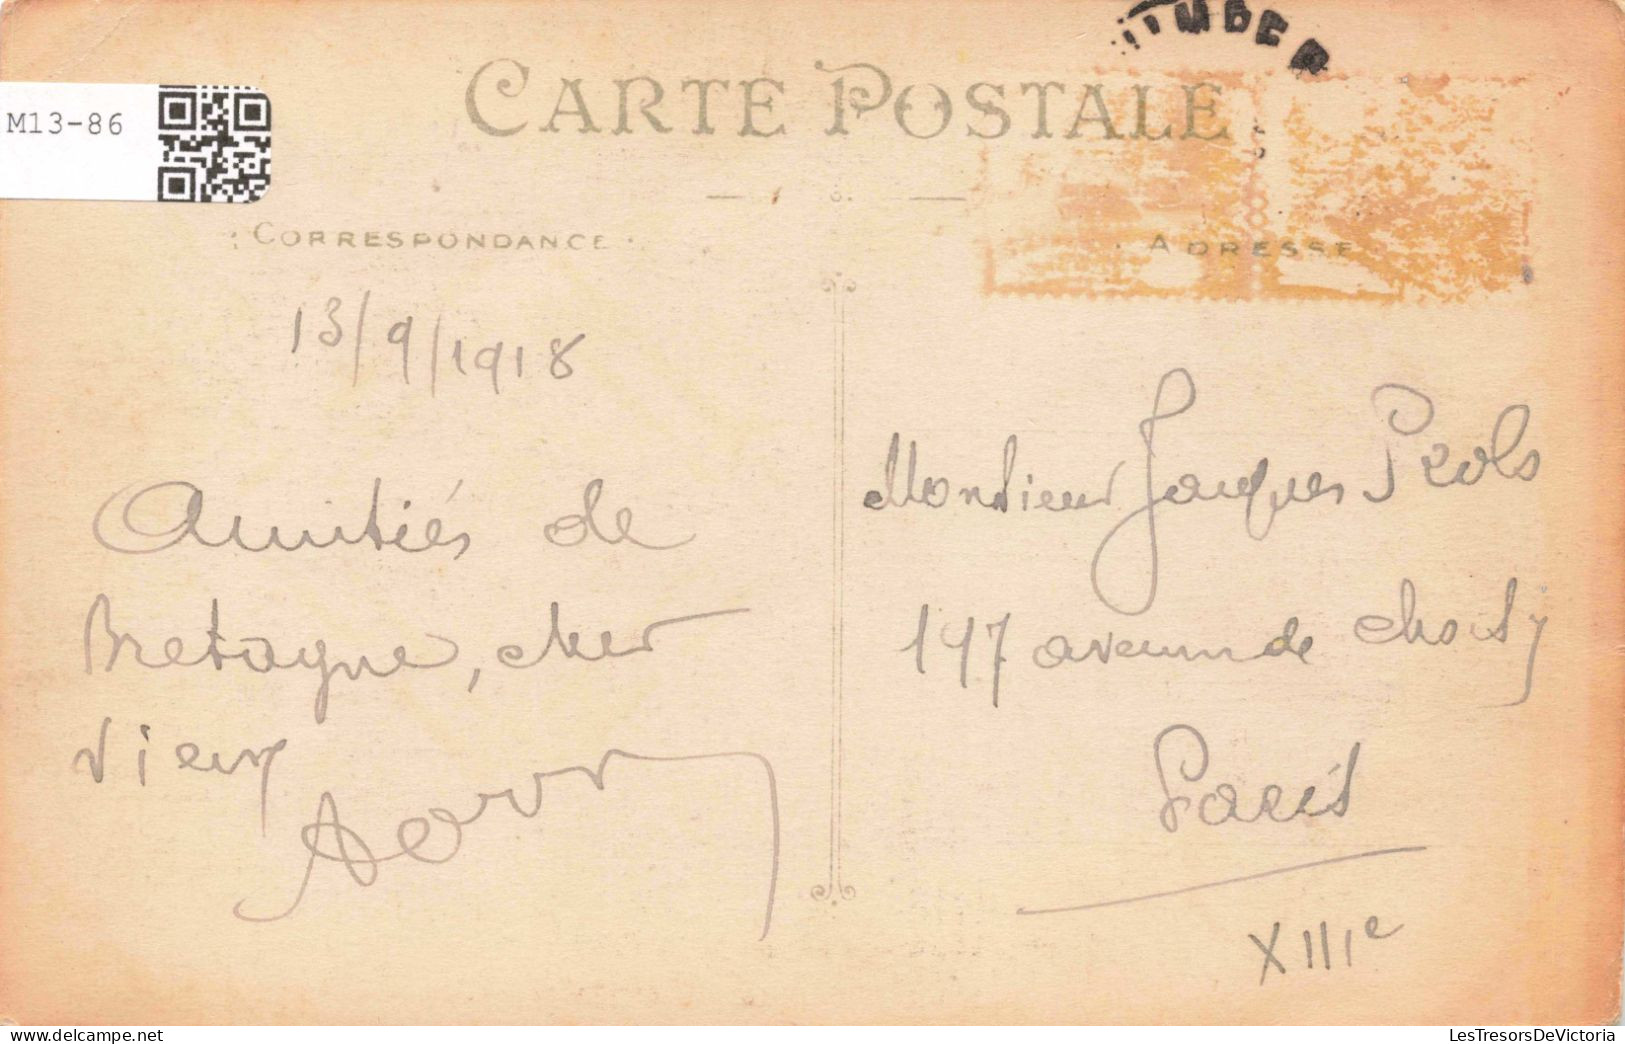 M13-86
CARTE POSTALE
CORRESPONDANCE
ADRESSE
13/9/1918
Amitiés de
Bretagne, cher
vieux
Monsieur Jacques
197 avenue de Choisy
Paris
XIIIe
LesTresorsDeVictoria